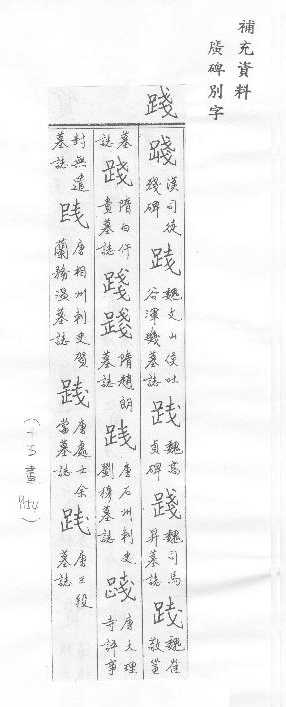 補充資料
廣碑別字
踐
踐 漢司徒殘碑 踐 魏文山侯吐谷渾璣墓誌 践 魏高貞碑 踐 魏司馬昇墓誌 践 魏崔敬邕
墓誌 践 隋白仵貴墓誌 踐 踐 隋趙朗墓誌 践 唐石州刺史劉穆墓誌 踐 唐大理寺評事
封無遺墓誌 践 唐相州刺史賀蘭務溫墓誌 践 唐處士余當墓誌 践 唐王段墓誌